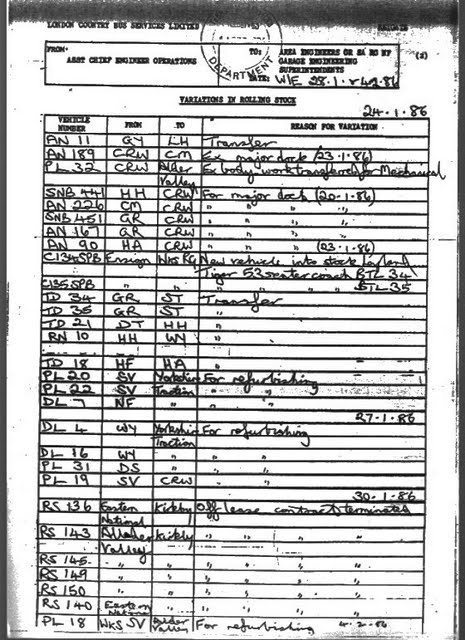 LONDON COUNTRY BUS SERVICES LIMITED
FROM: ASST CHIEF ENGINEER OPERATIONS
TO: AREA ENGINEERS
GARAGE ENGINEERING
SUPERINTENDENTS
(2)
DEPARTMENT
DATE: W/E 28.1. & 4.2.86
VARIATIONS IN ROLLING STOCK
24.1.86
VEHICLE NUMBER FROM TO REASON FOR VARIATION
AN 11 GY LH Transfer
AN 189 CRW CM Ex major dock (23.1.86)
PL 32 CRW Alder Valley Ex body-work transferred for Mechanical
SNB 441 HH CRW For major dock (20.1.86)
AN 226 CM CRW " " "
SNB 451 GR CRW " " "
AN 167 GR CRW " " "
AN 90 HA CRW " " " (23.1.86)
C134SPB Ensign WKS RG New vehicle into stock Leyland
Tiger 53 seater coach BTL 34
C135SPB " " " " BTL 35
TD 34 GR ST Transfer
TD 35 GR ST "
TD 21 DT HH "
RN 10 HH WY "
TD 18 HF HA "
PL 20 SV Yorkshire Traction For refurbishing
PL 22 SV " " "
DL 7 NF " " "
27.1.86
DL 4 WY Yorkshire Traction For refurbishing
DL 16 WY " " "
PL 31 DS " " "
PL 19 SV CRW " "
30.1.86
RS 136 Eastern National Kirkby Off lease contract terminated
RS 143 Alder Valley Kirkby " " " "
RS 145 " " " " " "
RS 149 " " " " " "
RS 150 " " " " " "
RS 140 Eastern National " " " " "
PL 18 WKS SV Alder Valley For refurbishing 4.2.86